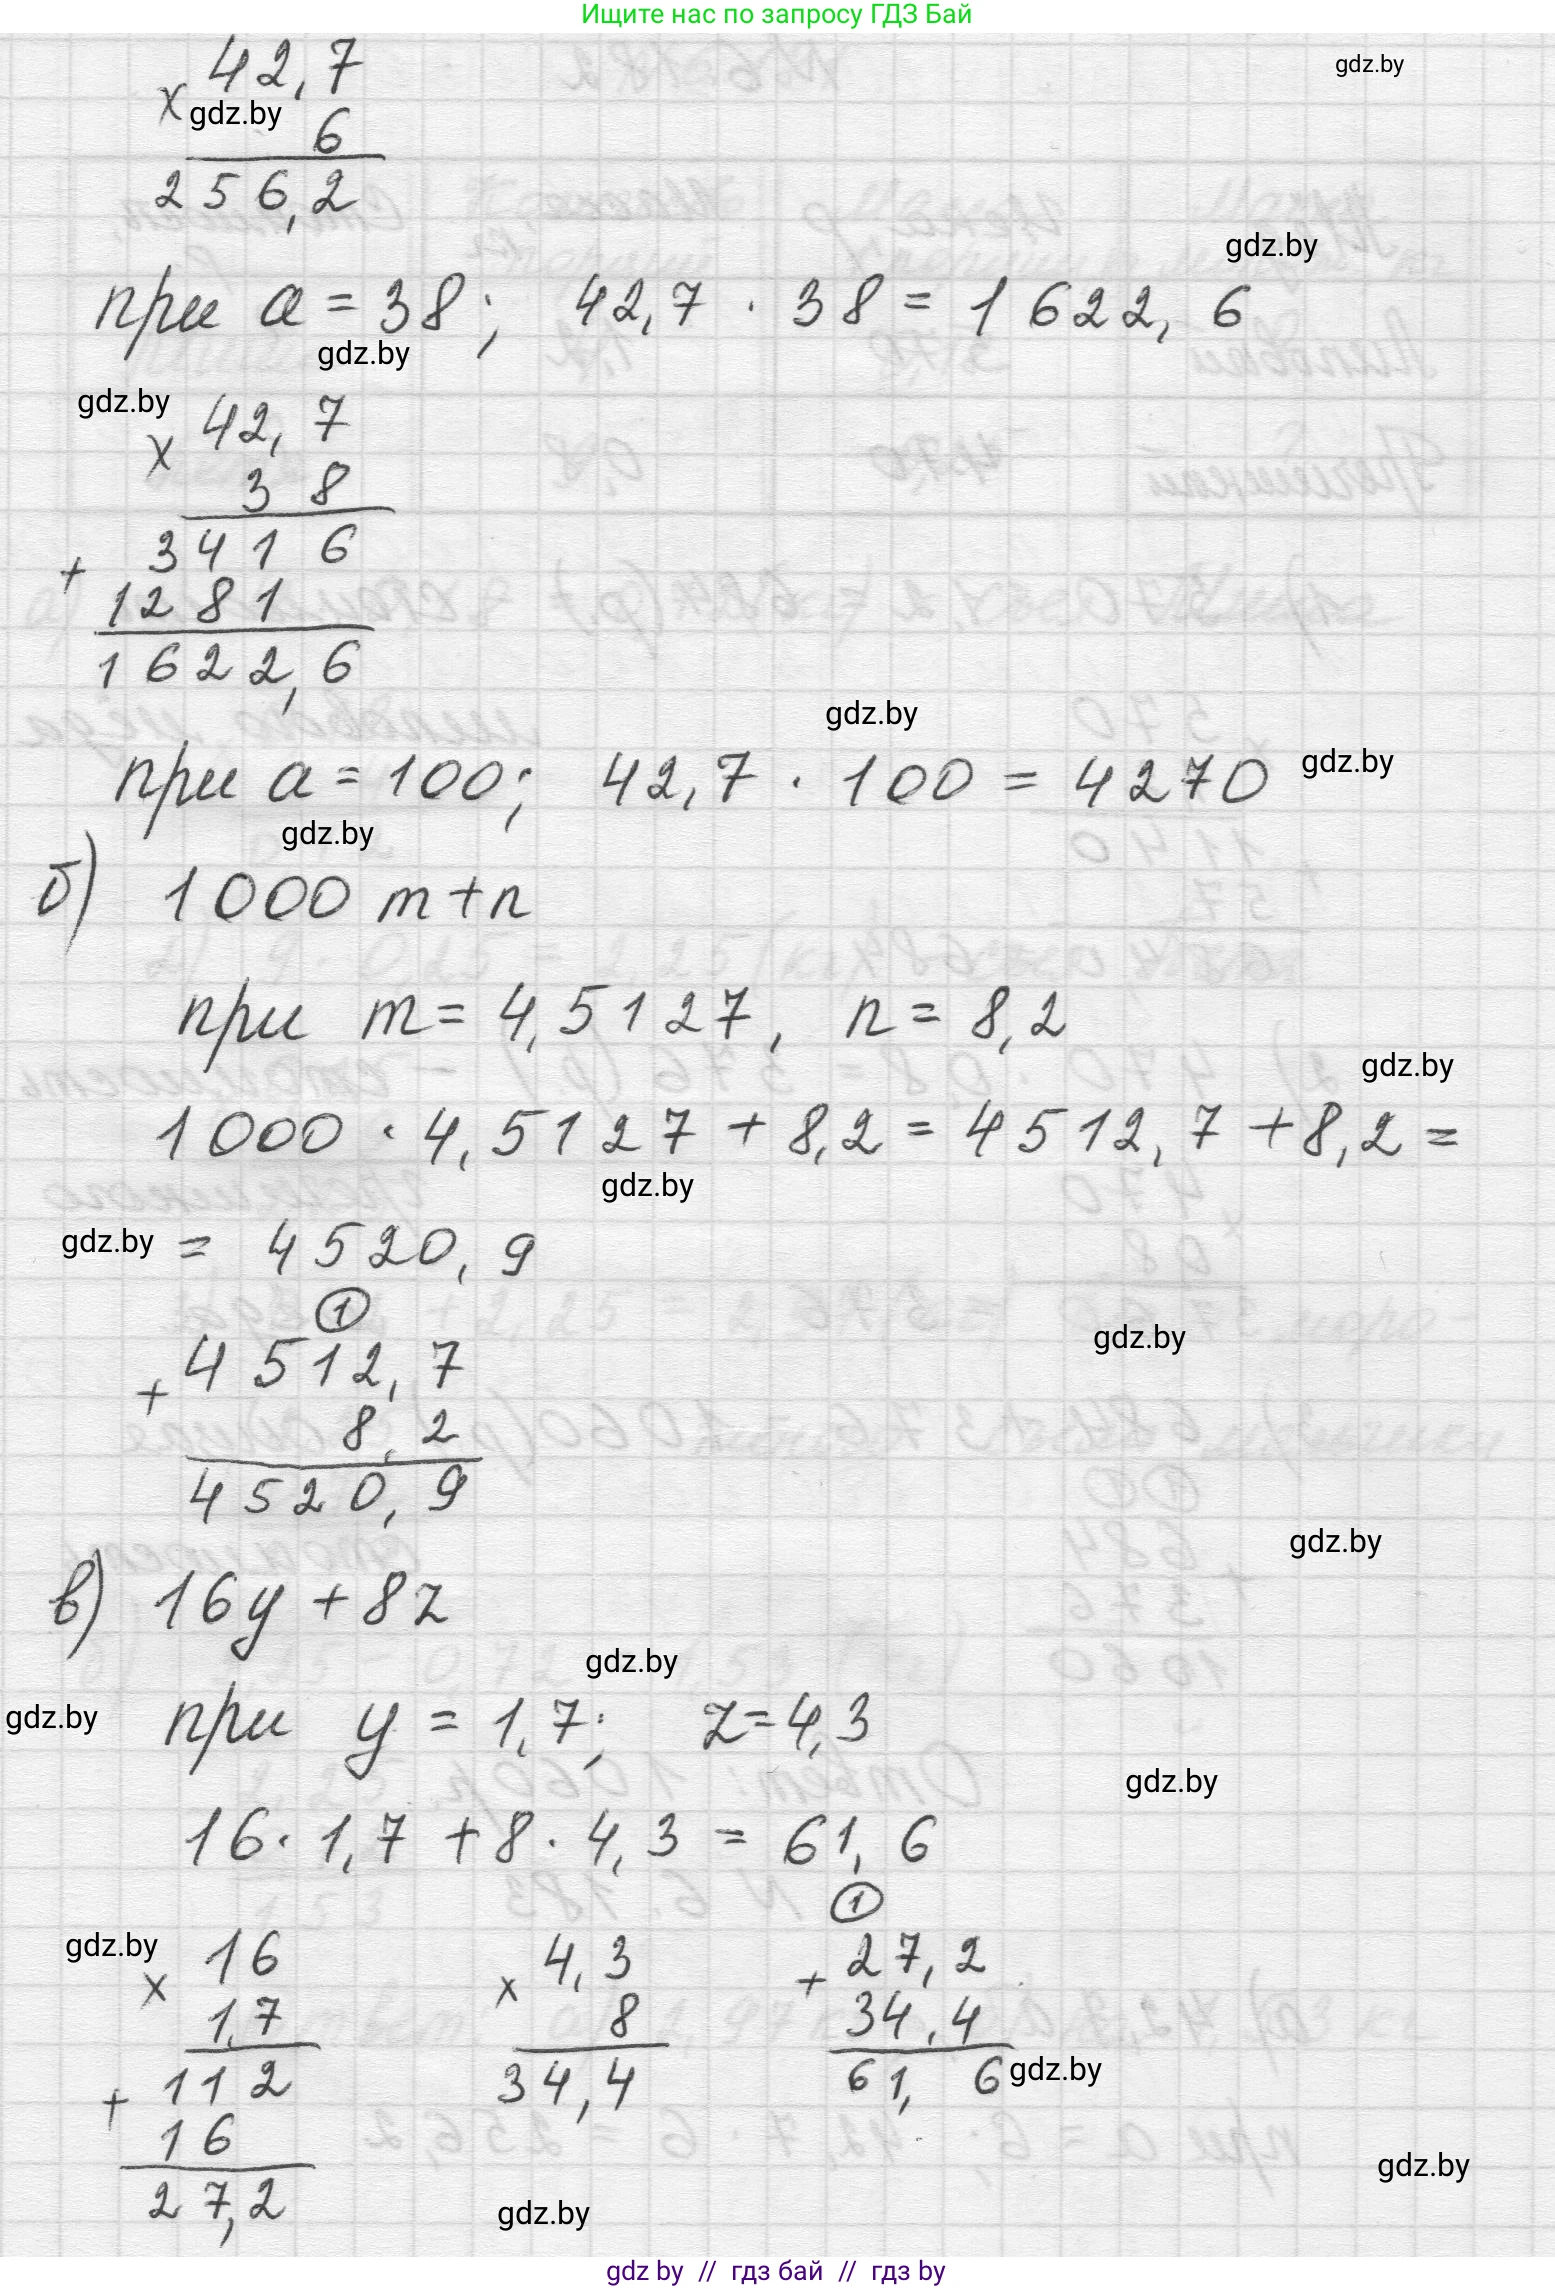 Ищите нас по запросу ГДЗ Бай
gdz.by
42,7
× gdz.by
6
256,2
gdz.by
при a = 38; 42,7 · 38 = 1622,6
gdz.by
gdz.by
× 42,7
38
+ 3416
1281
1622,6
gdz.by
при a = 100; 42,7 · 100 = 4270 gdz.by
gdz.by
б) 1000 m + n
при m = 4,5127, n = 8,2
gdz.by
1000 · 4,5127 + 8,2 = 4512,7 + 8,2 =
gdz.by
gdz.by = 4520,9
1
gdz.by
+ 4512,7
8,2
4520,9
gdz.by
в) 16y + 8z
gdz.by
gdz.by при y = 1,7; z = 4,3
gdz.by
16 · 1,7 + 8 · 4,3 = 61,6
1
gdz.by × 16 × 4,3 + 27,2
1,7 8 34,4
+ 112 34,4 61,6 gdz.by
16
gdz.by
27,2 gdz.by
gdz by // гдз бай // гдз by